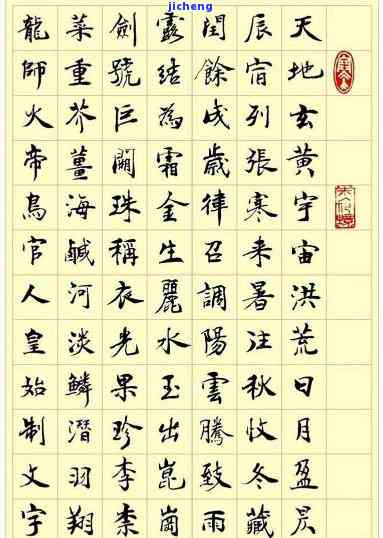 jicheng
天地玄黃宇宙洪荒日月盈昃
辰宿列張寒来暑往秋收冬藏
閏餘成歲律召調陽雲騰致雨
露結為霜金生麗水玉出崑崗
劍號巨闕珠稱夜光果珍李柰
菜重芥薑海鹹河淡鱗潛羽翔
龍師火帝鳥官人皇始制文字